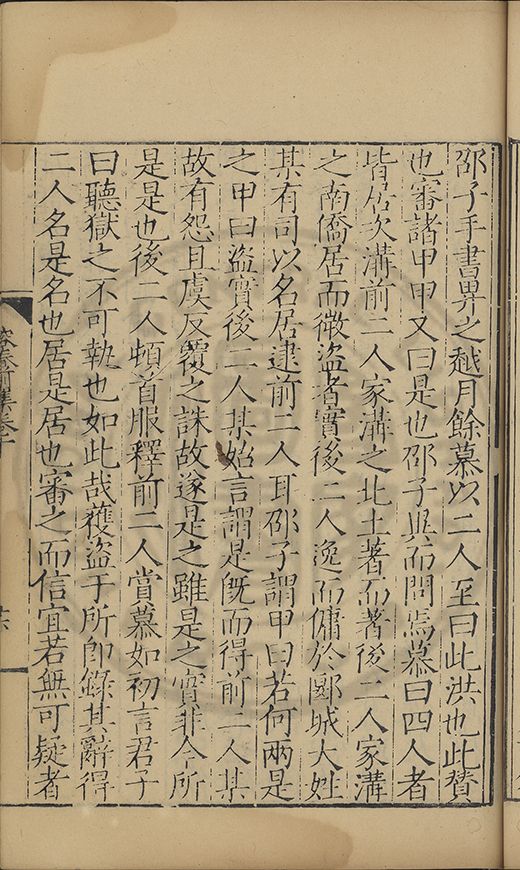 邵子手書畀之越月餘慕以二人至曰此洪也此贊
也審諸甲甲又曰是也邵子異而問焉慕曰四人者
皆居次溝前二人家溝之北土著而著後二人家溝
之南僑居而微盜者實後二人逸而傭於郾城大姓
某有司以名居逮前二人耳邵子謂甲曰若何兩是
之甲曰盜實後二人某始言謂是旣而得前二人某
故有怨且虞反覆之誅故遂是之雖是之實非今所
是是也後二人頓首服釋前二人賞慕如初言君子
曰聽獄之不可執也如此哉獲盜于所卽錄其辭得
二人名是名也居是居也審之而信宜若無可疑者